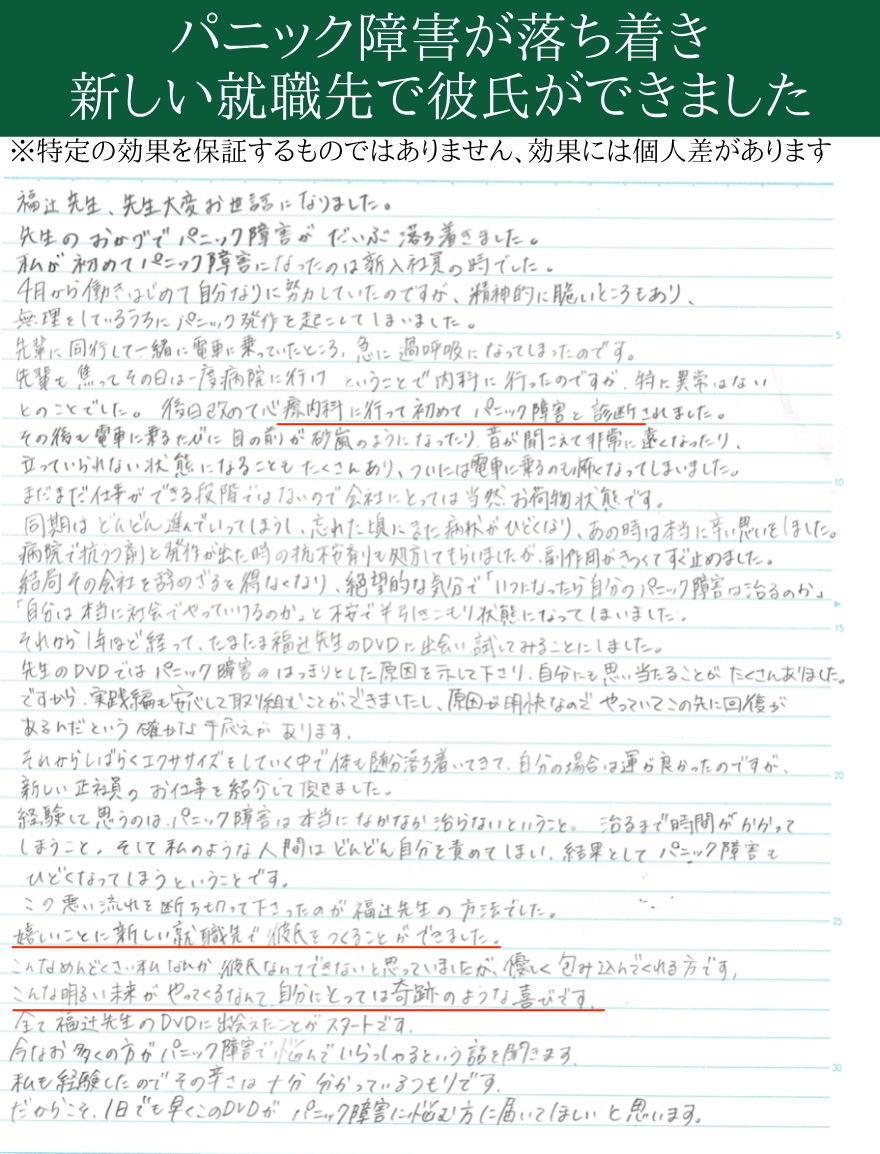 パニック障害が落ち着き
新しい就職先で彼氏ができました
※特定の効果を保証するものではありません、効果には個人差があります
福辻先生、先生大変お世話になりました。
先生のおかげでパニック障害がだいぶ落ち着きました。
私が初めてパニック障害になったのは新入社員の時でした。
4月から働きはじめて自分なりに努力していたのですが、精神的に脆いところもあり、
無理をしているうちにパニック発作を起こしてしまいました。
先輩に同行して一緒に電車に乗っていたところ、急に過呼吸になってしまったのです。
先輩も焦ってその日は一度病院に行け ということで内科に行ったのですが、特に異常はない
とのことでした。後日改めて心療内科に行って初めてパニック障害と診断されました。
その後も電車に乗るたびに目の前が砂嵐のようになったり、音が聞こえて非常に遠くなったり、
立っていられない状態になることもたくさんあり、ついには電車に乗るのも怖くなってしまいました。
まだまだ仕事ができる段階ではないので会社にとっては当然お荷物状態です。
同期はどんどん進んでいってしまうし、忘れた頃にまた病状がひどくなり、あの時は本当に辛い思いをしました。
病院で抗うつ剤と発作が出た時の抗不安剤も処方してもらいましたが、副作用がきつくてすぐ止めました。
結局その会社を辞めざるを得なくなり、絶望的な気分で「いつになったら自分のパニック障害は治るのか」
「自分は本当に社会でやっていけるのか」と不安で半引きこもり状態になってしまいました。
それから1年ほど経って、たまたま福辻先生のDVDに出会い試してみることにしました。
先生のDVDではパニック障害のはっきりとした原因を示して下さり、自分にも思い当たることがたくさんありました。
ですから、実践編も安心して取り組むことができましたし、原因が明快なのでやっていてこの先に回復が
あるんだという確かな手応えがあります。
それからしばらくエクササイズをしていく中で体も随分落ち着いてきて、自分の場合は運が良かったのですが、
新しい正社員のお仕事を紹介して頂きました。
経験して思うのは、パニック障害は本当になかなか治らないということ。治るまで時間がかかって
しまうこと。そして私のような人間はどんどん自分を責めてしまい、結果としてパニック障害も
ひどくなってしまうということです。
この悪い流れを断ち切って下さったのが福辻先生の方法でした。
嬉しいことに新しい就職先で彼氏をつくることができました。
こんなめんどくさい私なんか彼氏なんてできないと思っていましたが、優しく包み込んでくれる方です。
こんな明るい未来がやってくるなんて、自分にとっては奇跡のような喜びです。
全て福辻先生のDVDに出会えたことがスタートです。
今なお多くの方がパニック障害で悩んでいらっしゃるという話を聞きます。
私も経験したのでその辛さは十分分かっているつもりです。
だからこそ、1日でも早くこのDVDがパニック障害に悩む方に届いてほしいと思います。
5
10
15
20
25
30